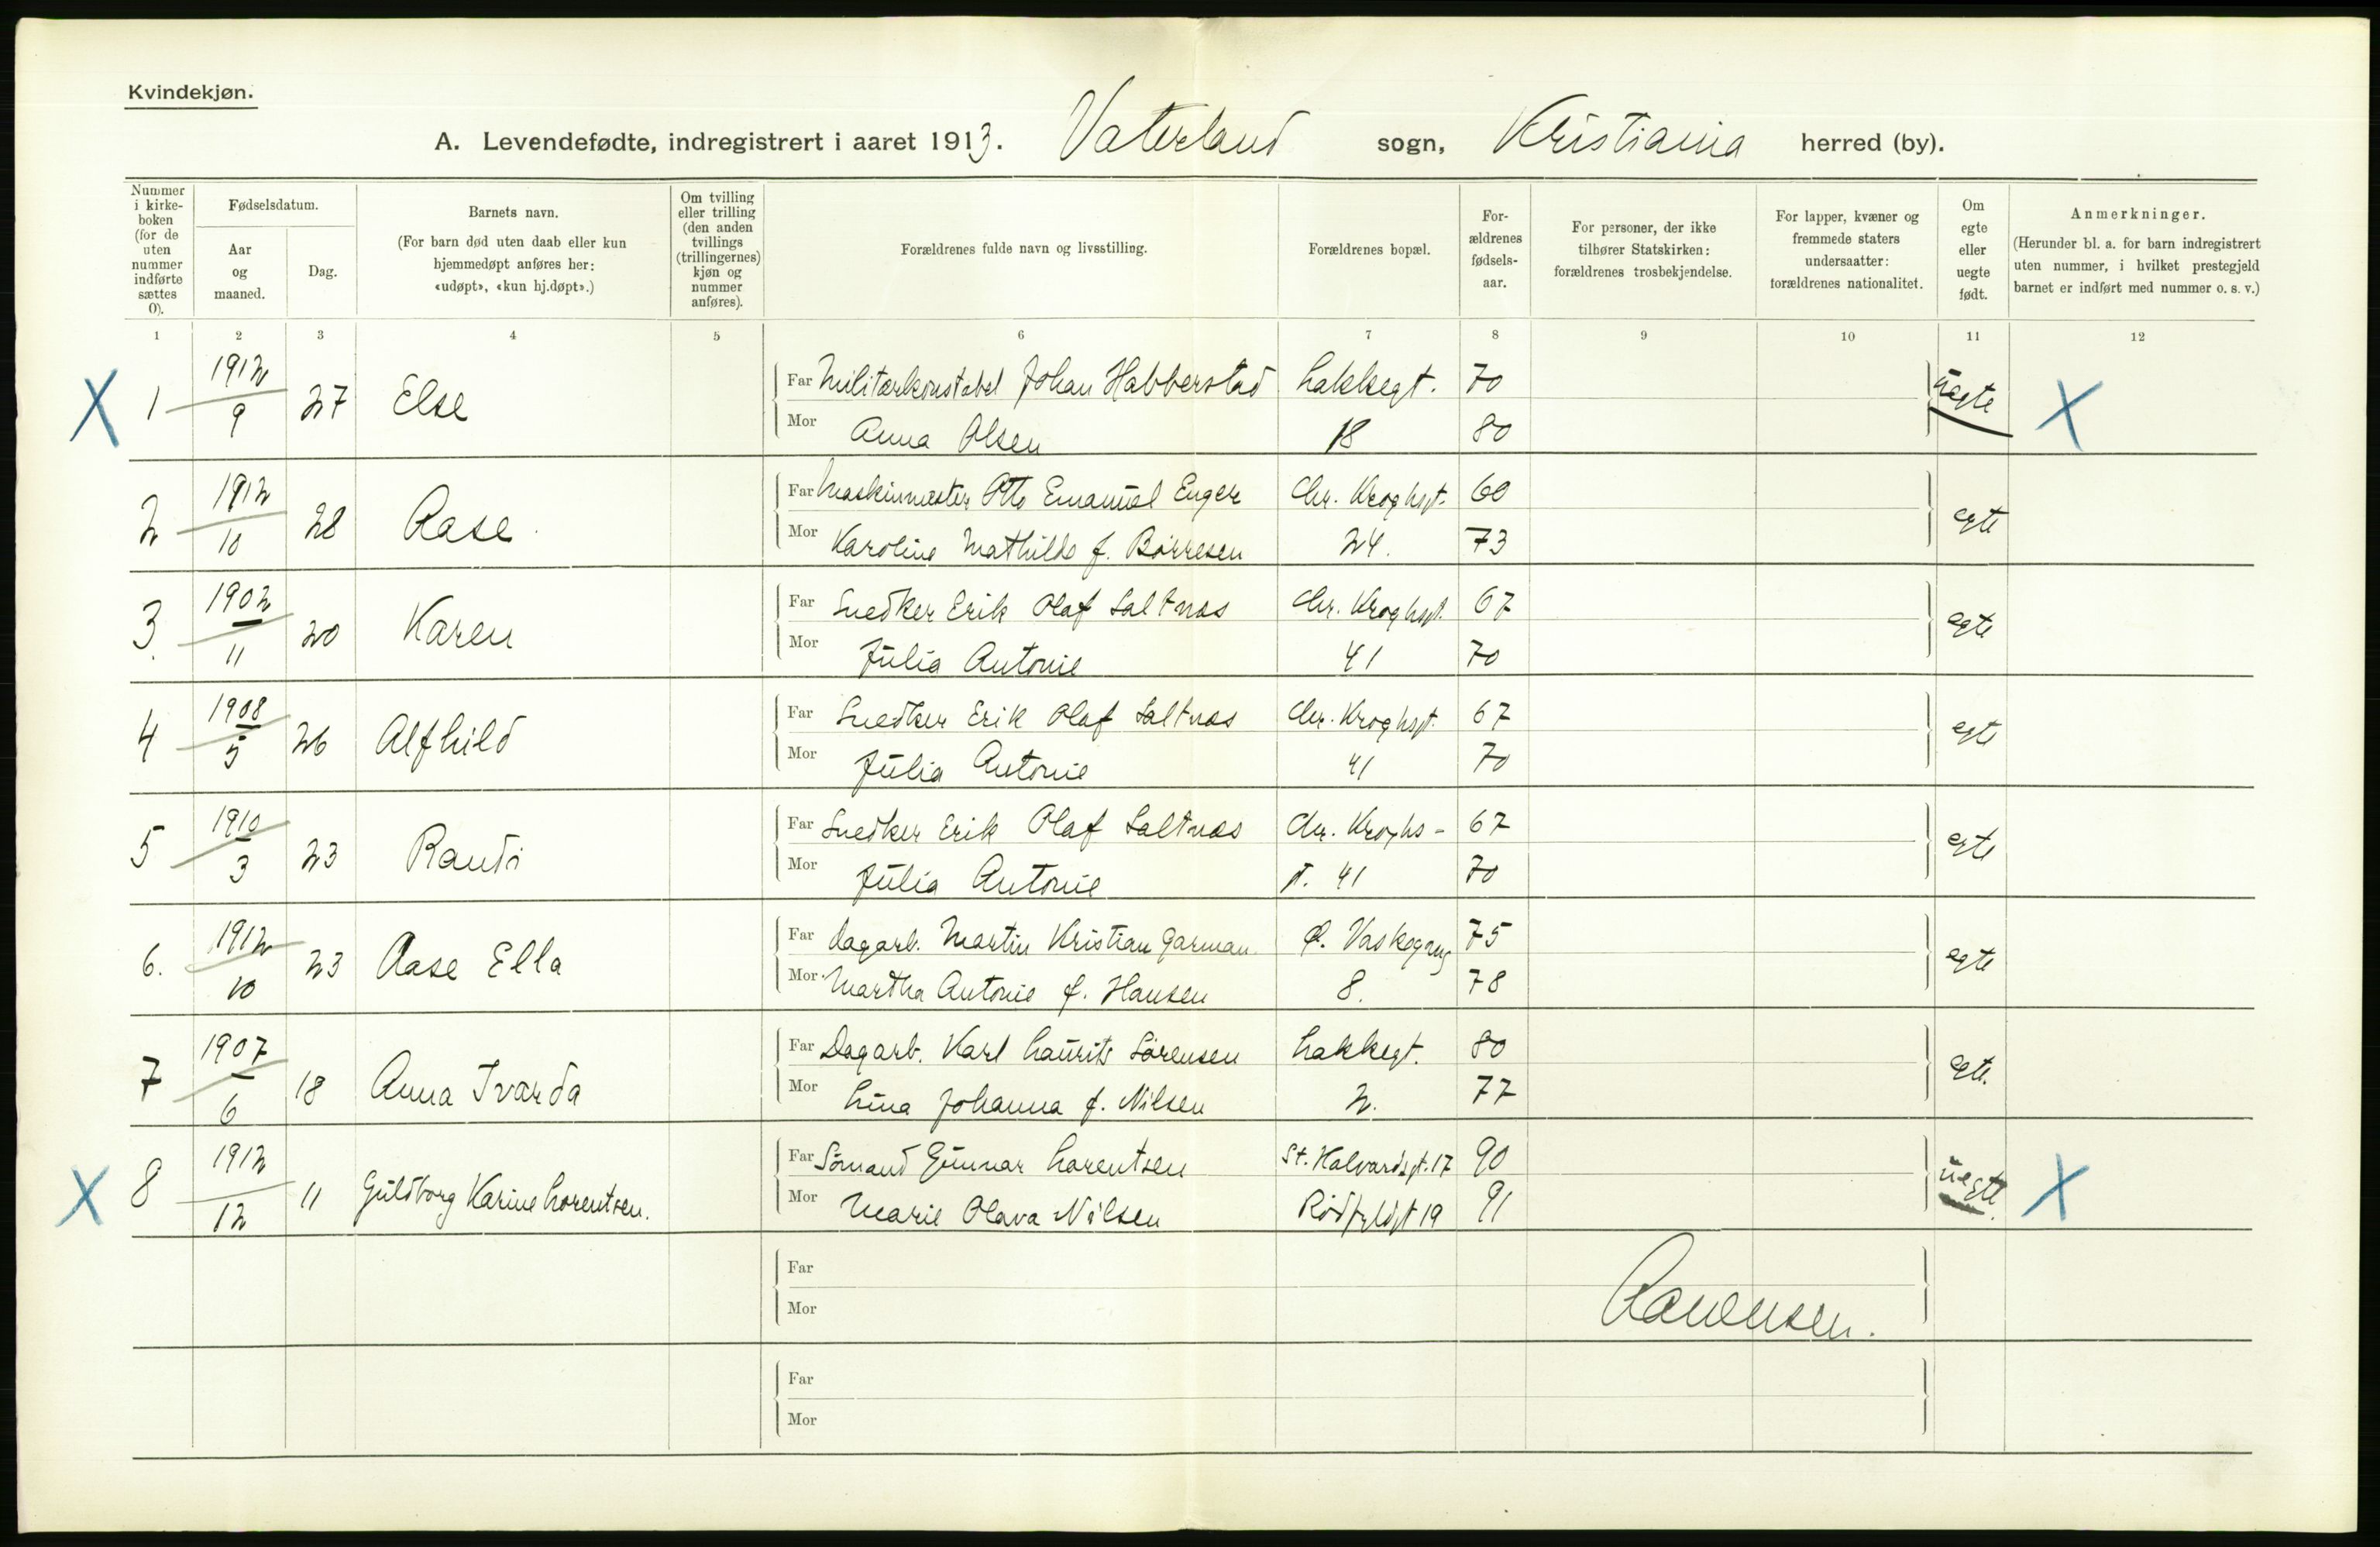 Kvindekjøn.
A. Levendefødte, indregistrert i aaret 1913. Vaterland sogn, Kristiania herred (by).
Nummer i kirke-boken (for de uten nummer indførte sættes 0).
Fødselsdatum.
Aar og maaned.
Dag.
Barnets navn.
(For barn død uten daab eller kun hjemmedøpt anføres her: «udøpt», «kun hj.døpt».)
Om tvilling eller trilling (den anden tvillings (trillingernes) kjøn og nummer anføres).
Forældrenes fulde navn og livsstilling.
Forældrenes bopæl.
For-ældrenes fødsels-aar.
For personer, der ikke tilhører Statskirken: forældrenes trosbekjendelse.
For lapper, kvæner og fremmede staters undersaatter: forældrenes nationalitet.
Om egte eller uegte født.
Anmerkninger.
(Herunder bl. a. for barn indregistrert uten nummer, i hvilket prestegjeld barnet er indført med nummer o. s. v.)
1 2 3 4 5 6 7 8 9 10 11 12
X 1 1912/9 27 Else Far Militærkonstabel Johan Habberstad Lakkegt. 70 uegte X
Mor Anna Olsen 18 80
2 1912/10 28 Aase Far Maskinmester Otto Emanuel Enger Chr. Kroghsgt. 60 egte
Mor Karoline Mathilde f. Börresen 24. 73
3 1902/11 20 Karen Far Snedker Erik Olaf Saltnæs Chr. Kroghsgt. 67 egte
Mor Julia Antonie 41 70
4 1908/5 26 Alfhild Far Snedker Erik Olaf Saltnæs Chr. Kroghsgt. 67 egte
Mor Julia Antonie 41 70
5 1910/3 23 Randi Far Snedker Erik Olaf Saltnæs Chr. Kroghs- 67 egte
Mor Julia Antonie gt. 41 70
6. 1912/10 23 Aase Ella Far Dagarb. Martin Kristian Garman Ø. Vaskegang 75 egte
Mor Martha Antonie f. Hansen 8. 78
7 1907/6 18 Anna Ivarda Far Dagarb. Karl Laurits Sörensen Lakkegt. 80 egte.
Mor Lina Johanna f. Nilsen 2. 77
X 8 1912/12 11 Guldborg Karine Lorentsen. Far Sömand Gunnar Lorentsen St. Halvardsgt. 17 90 uegte. X
Mor Marie Olava Nilsen Rödfyldgt 19 91
Far
Mor
Far
Mor